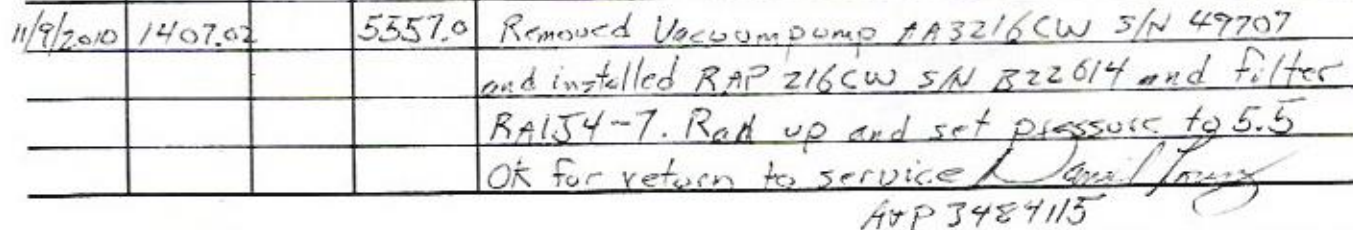 11/9/2010 1407.02 5557.0 Removed Vacuumpump AA3216CW S/N 49707
and installed RAP 216CW S/N B22614 and filter
RA1J4-7. Ran up and set pressure to 5.5
Ok for return to service
A&P 3484115